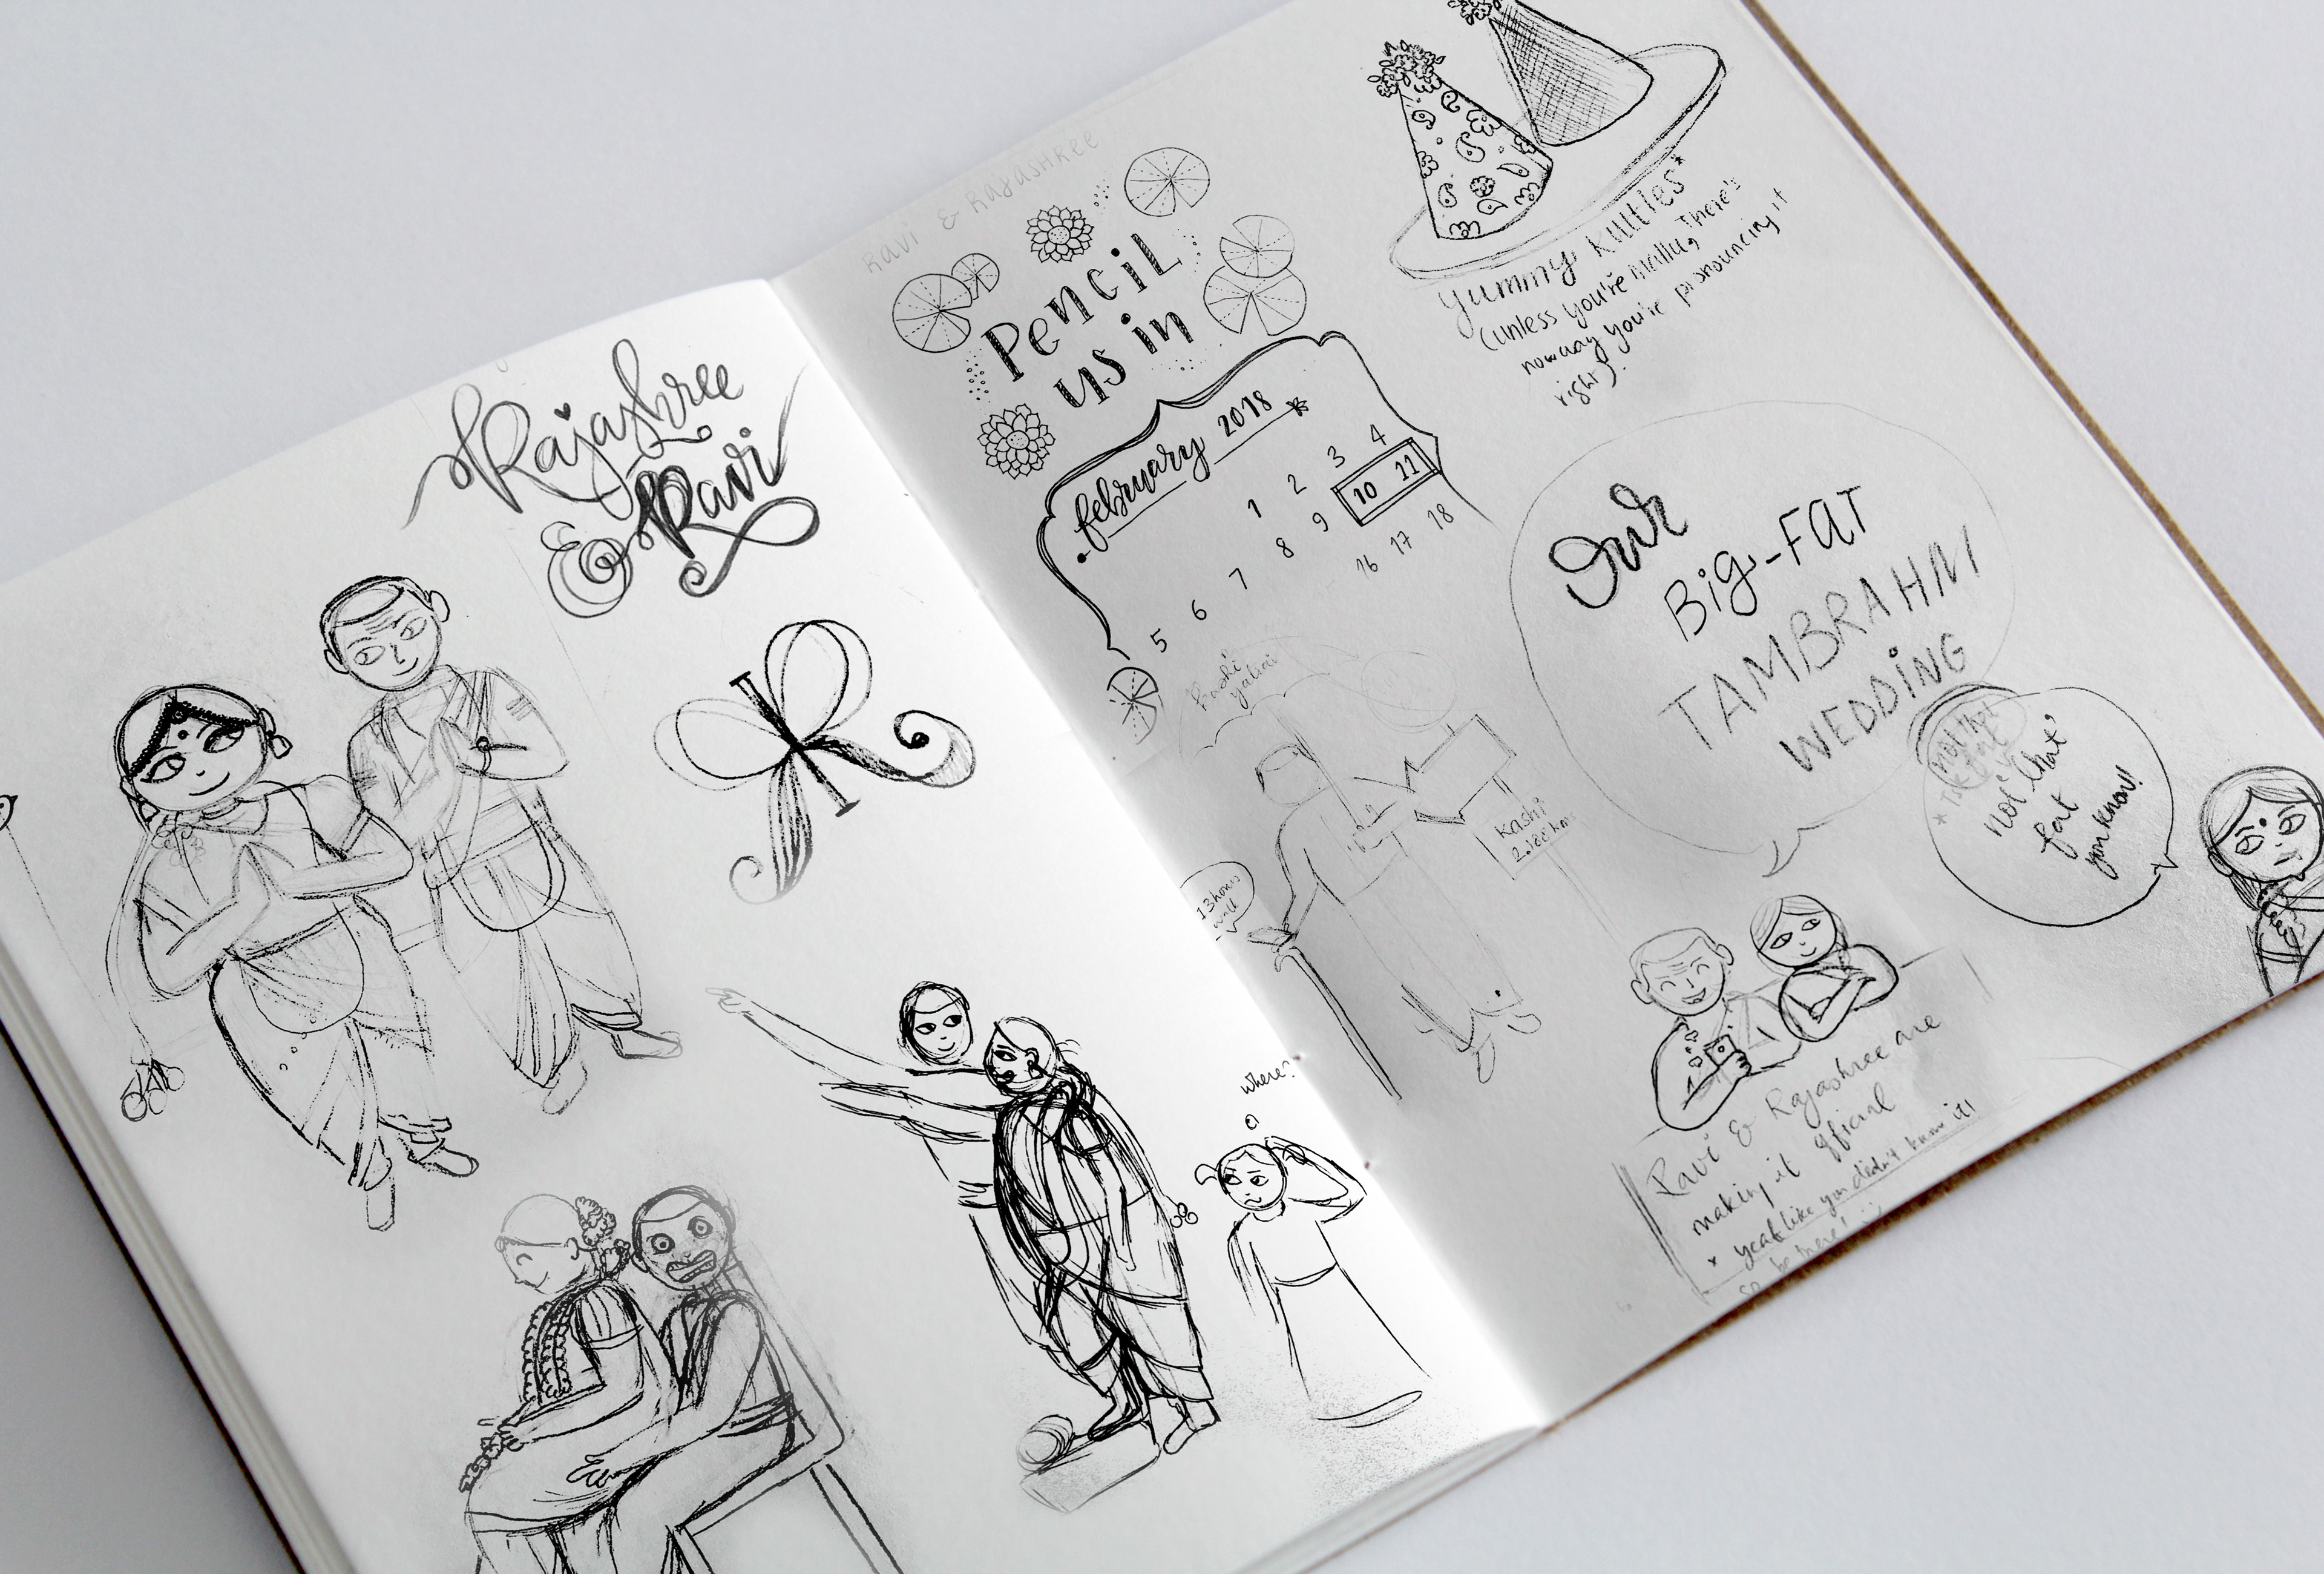 Rajashree
& Ravi
R
where?
Ravi & Rajashree
Pencil
us in
february 2018
1 2 3 4
5 6 7 8 9 10 11
16 17 18
Kashi
yatrai
Kashi
13 hours
walk
yummy Kutties*
(unless you're mallu, There's
noway you're pronouncing it
right).
Our
Big-FAT
TAMBRAHM
WEDDING
not that
fat
not 'that'
fat
you know!!
Ravi & Rajashree are
making it official
* yeah like you didn't know it!
so be there!